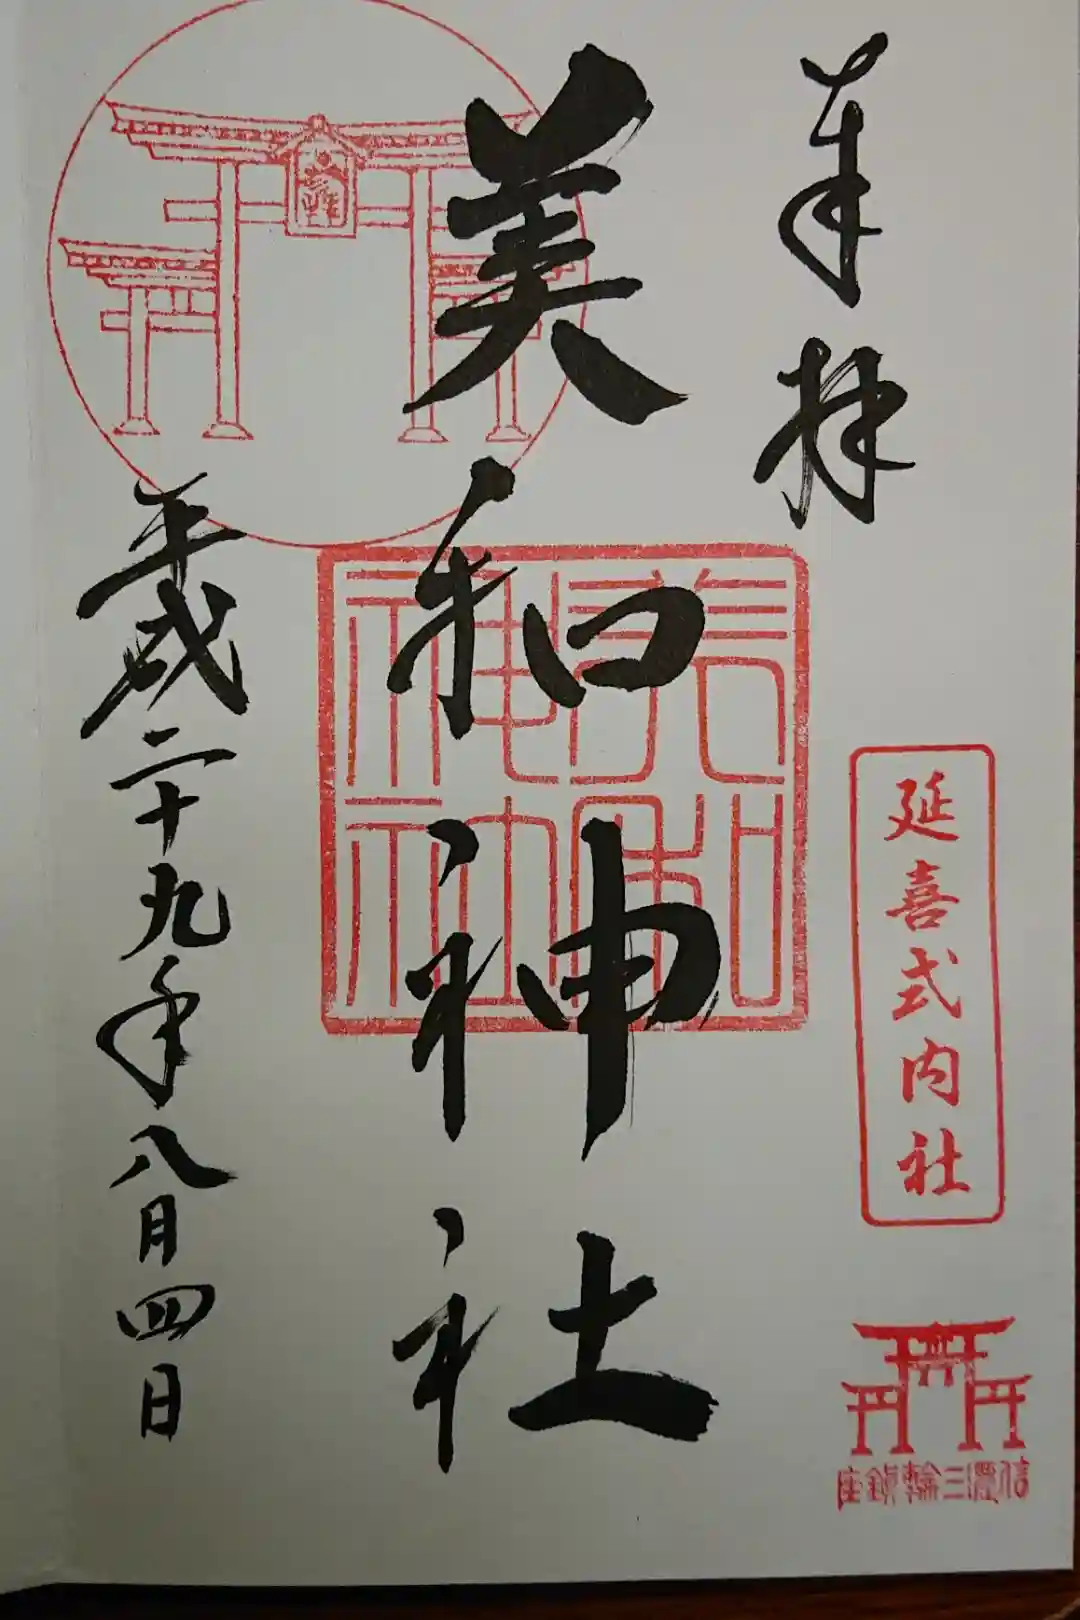 奉拝
延喜式内社
信濃三輪鎮座
美和神社
美和神社
平成二十九年八月四日